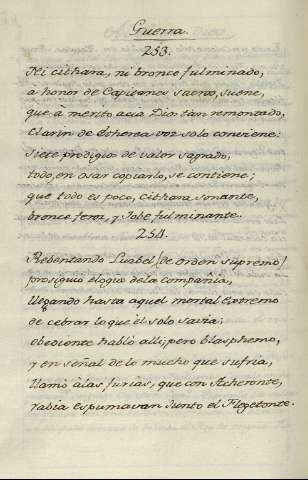 Guerra.
253.
Ni cithara, ni bronce fulminado,
à honor de Capitanes sacro, suene,
que à merito acia Dios tan remontado,
Clarin de Etherea voz solo conviene:
siete prodigio de valor sagrado,
todo, en osar copiarlo, se contiene;
que todo es poco, cithara sonante,
bronce feroz, y Jobe fulminante.
254.
Rebentando Luzbel /de orden supremo/
prosiguió elogio de la compañia,
llegando hasta aquel mortal extremo
de cebrar lo que èl solo savia;
obediente habló alli; pero blasphemo,
y en señal de lo mucho que sufria,
llamó à las furias, que con Acheronte,
rabia espumavan junto el Flegetonte.